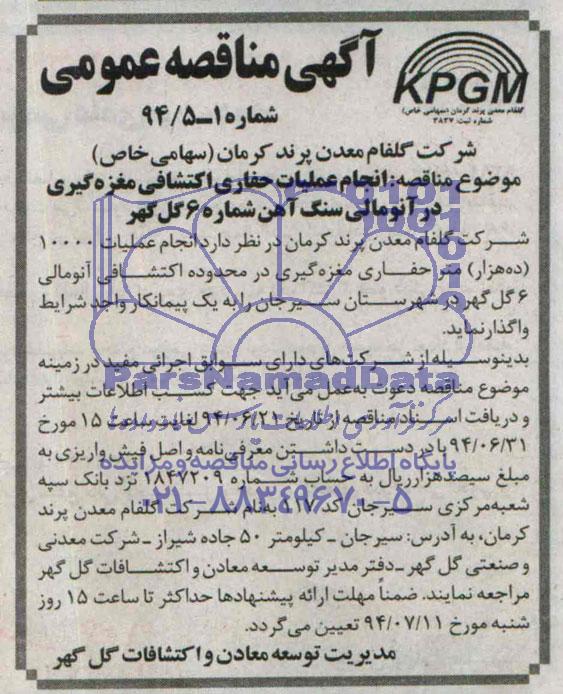 آگهی مناقصه عمومی
KPGM
گلفام معدن پرند کرمان (سهامی خاص)
شماره ثبت: ۳۸۳۷
شماره ۱ــ۹۴/۵
شرکت گلفام معدن پرند کرمان (سهامی خاص)
موضوع مناقصه: انجام عملیات حفاری اکتشافی مغزه گیری
در آنومالی سنگ آهن شماره ۶ گل گهر
شرکت گلفام معدن پرند کرمان در نظر دارد انجام عملیات ۱۰۰۰۰
(ده‌هزار) متر حفاری مغزه گیری در محدوده اکتشافی آنومالی
۶ گل گهر در شهرستان سیرجان را به یک پیمانکار واجد شرایط
واگذار نماید.
بدینوسیله از شرکت‌های دارای سوابق اجرائی مفید در زمینه
موضوع مناقصه دعوت به‌عمل می‌آید جهت کسب اطلاعات بیشتر
و دریافت اسناد مناقصه از تاریخ ۹۴/۰۶/۲۱ لغایت ساعت ۱۵ مورخ
۹۴/۰۶/۳۱ با در دست داشتن معرفی‌نامه و اصل فیش واریزی به
مبلغ سیصدهزار ریال به حساب شماره ۲۸۴۷۲۰۹ نزد بانک سپه
شعبه مرکزی سیرجان کد ۴۱۷ به‌نام شرکت گلفام معدن پرند
کرمان، به آدرس: سیرجان ـ کیلومتر ۵۰ جاده شیراز ـ شرکت معدنی
و صنعتی گل گهر ـ دفتر مدیر توسعه معادن و اکتشافات گل گهر
مراجعه نمایند. ضمناً مهلت ارائه پیشنهادها حداکثر تا ساعت ۱۵ روز
شنبه مورخ ۹۴/۰۷/۱۱ تعیین می گردد.
مدیریت توسعه معادن و اکتشافات گل گهر
ParsNamadData
پایگاه اطلاع رسانی مناقصه و مزایده
۰۲۱-۸۸۳۴۹۶۷۰-۵